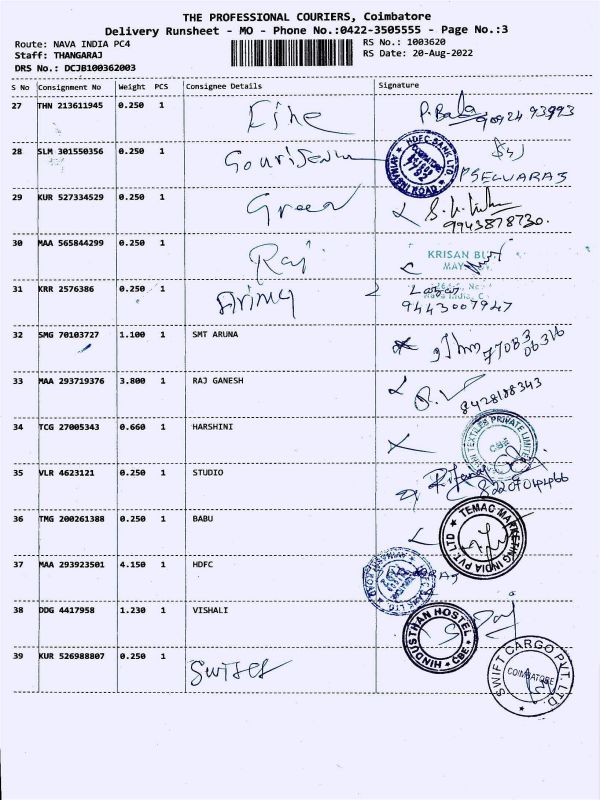 THE PROFESSIONAL COURIERS, Coimbatore
Delivery Runsheet - MO - Phone No.:0422-3505555 - Page No.:3
Route: NAVA INDIA PC4 RS No.: 1003620
Staff: THANGARAJ RS Date: 20-Aug-2022
DRS No.: DCJB100362003
S No Consignment No Weight PCS Consignee Details Signature
27 THN 213611945 0.250 1 P. Bala
28 SLM 301550356 0.250 1 HDFC BANK LTD
PSELVARAJ
29 KUR 527334529 0.250 1 Green
9943878730
30 MAA 565844299 0.250 1 Raj KRISAN
31 KRR 2576386 0.250 1
9443007947
32 SMG 70103727 1.100 1 SMT ARUNA 77083
06316
33 MAA 293719376 3.800 1 RAJ GANESH 8428188343
34 TCG 27005343 0.660 1 HARSHINI TEXTILES PRIVATE LIMITED
CBE
35 VLR 4623121 0.250 1 STUDIO
36 TMG 200261388 0.250 1 BABU TEMAC MARKETING INDIA PVT LTD
37 MAA 293923501 4.150 1 HDFC
38 DDG 4417958 1.230 1 VISHALI HINDUSTHAN HOSTEL CBE
39 KUR 526988807 0.250 1 SWIFT CARGO PVT. LTD.
COIMBATORE